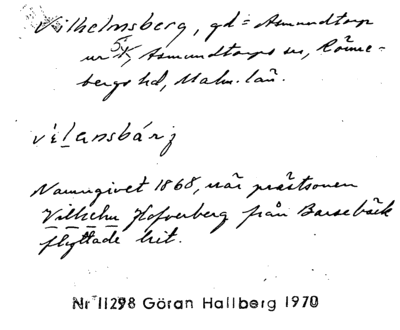 Vilhelmsberg, gd = Asmundtorp
nr 5/1, Asmundtorps sn, Rönne-
bergs hd, Malm. län.
vìlansbárj
Namngivet 1868, när prästsonen
Vilhelm Hofverberg från Barsebäck
flyttade hit.
Nr 11298 Göran Hallberg 1970